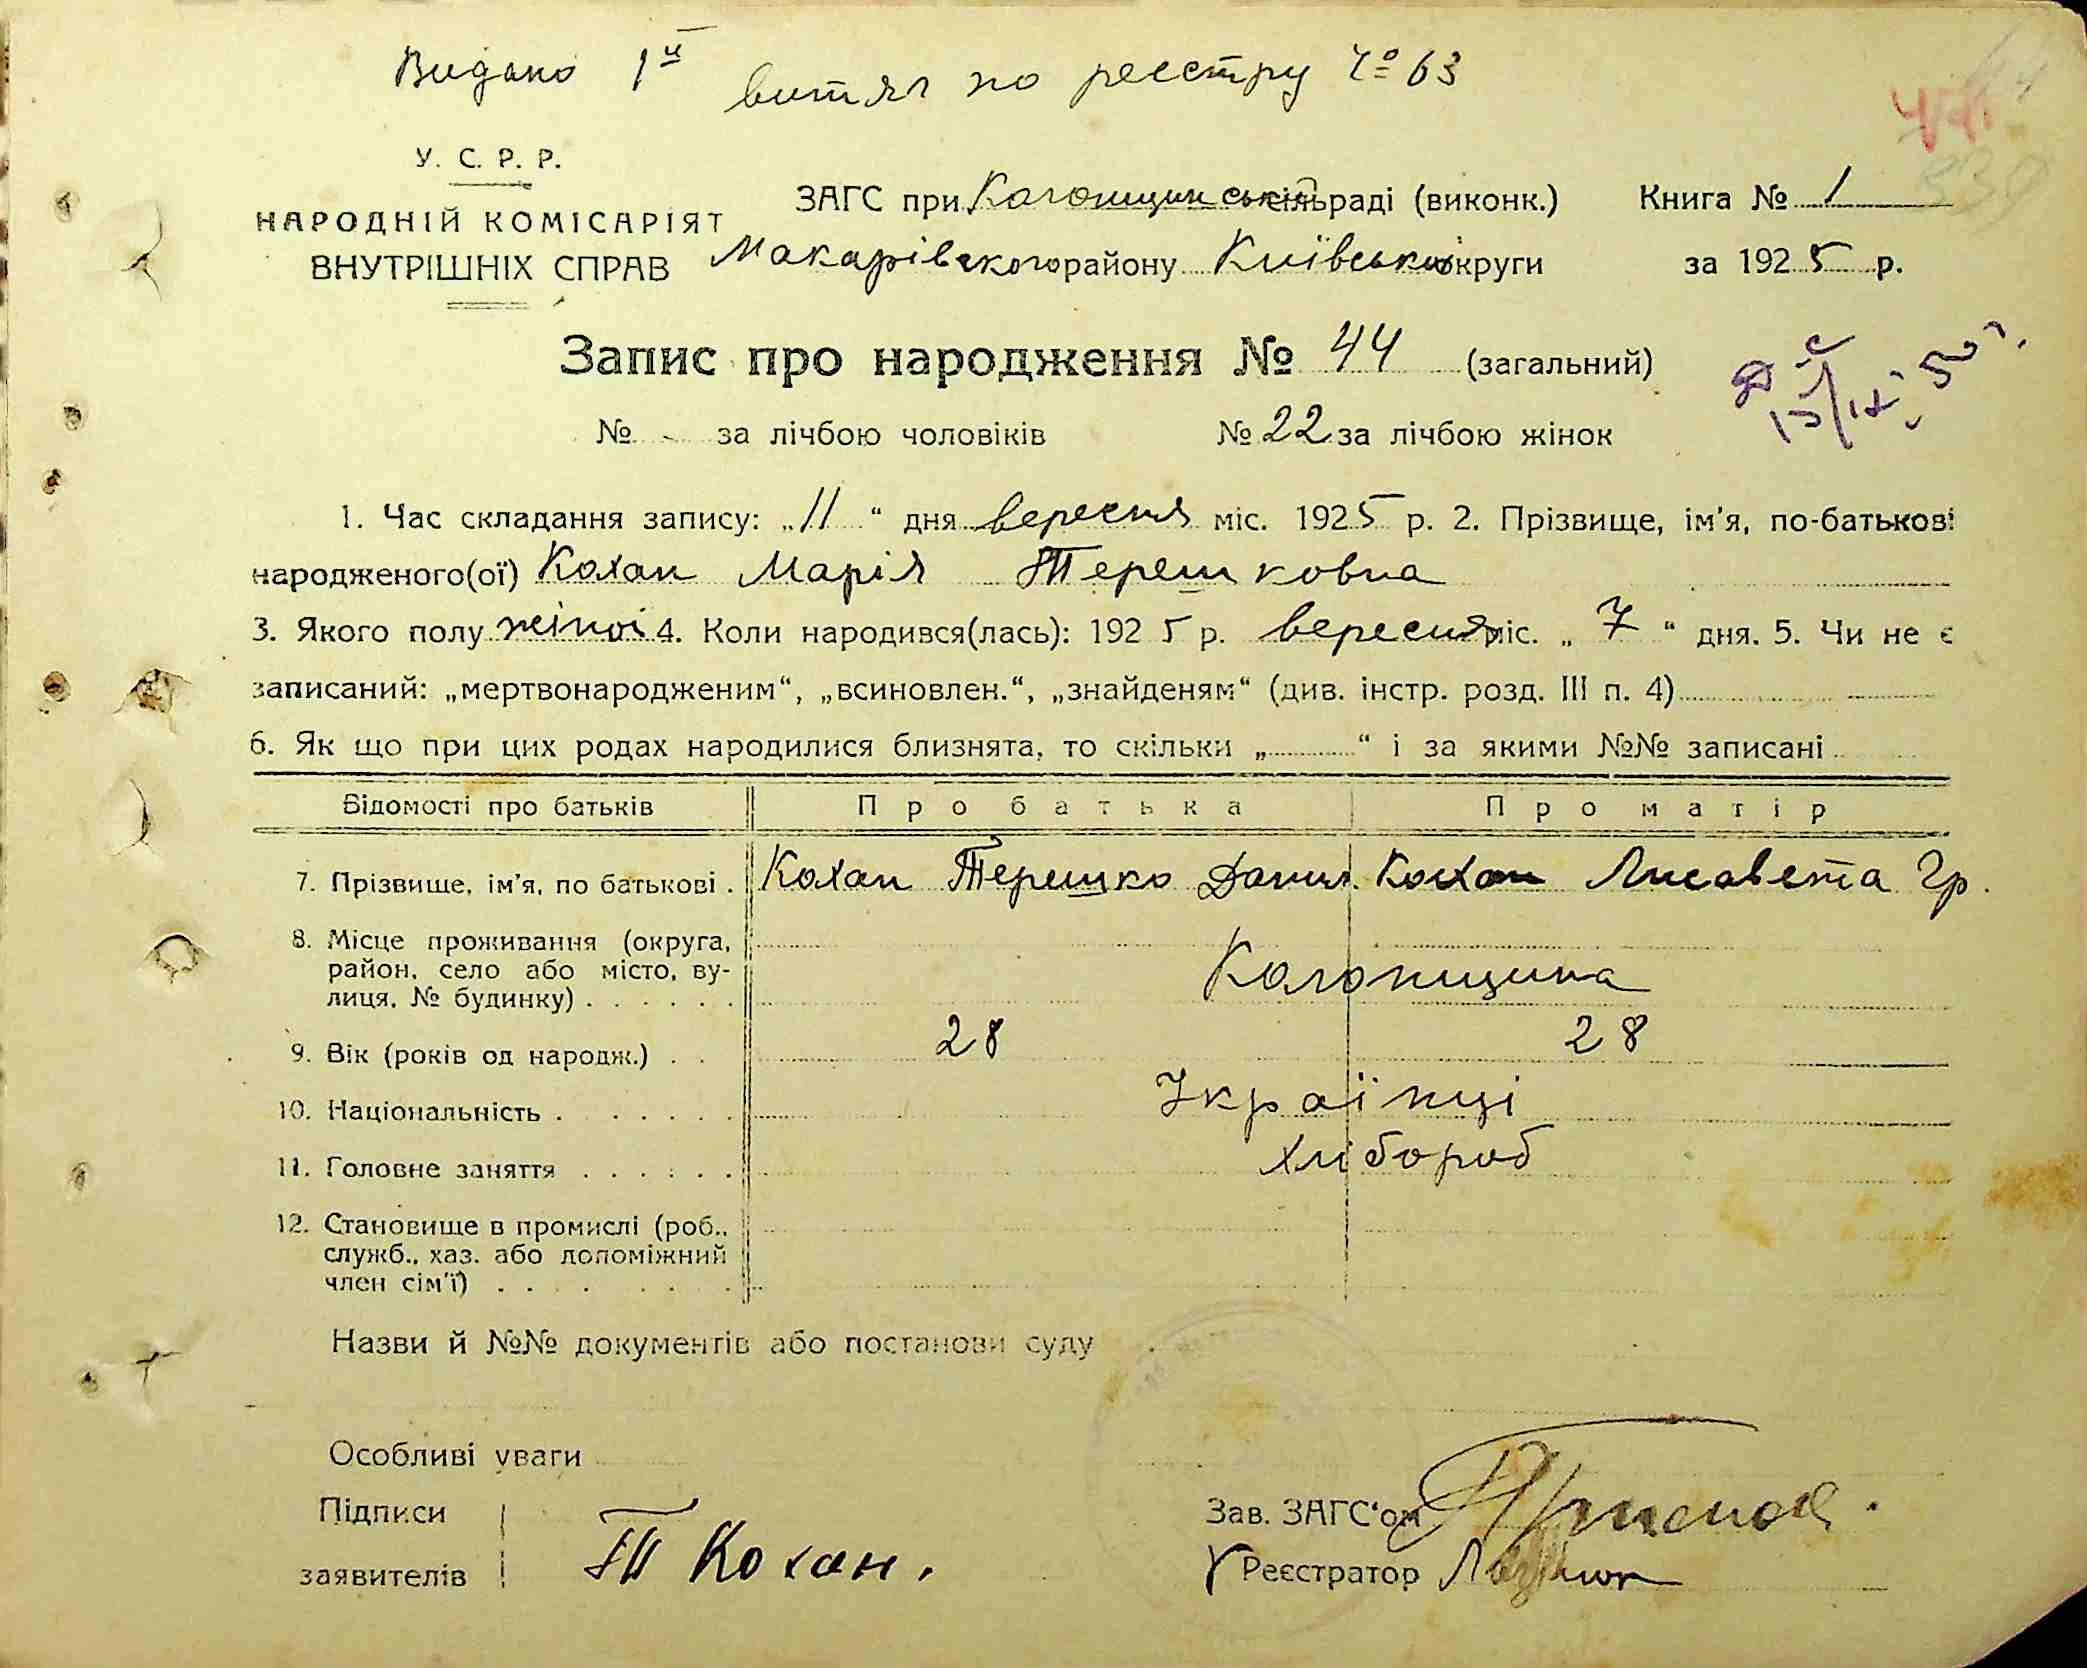 Видано 1й витяг по реєстру Чо 63
У. С. Р. Р.
НАРОДНІЙ КОМІСАРІЯТ
ВНУТРІШНІХ СПРАВ
ЗАГС при Колонщинській сільраді (виконк.)
Макарівського району Київської округи
Книга № 1
за 1925 р.
Запис про народження № 44 (загальний)
№ - за лічбою чоловіків № 22 за лічбою жінок
1. Час складання запису: „11“ дня вересня міс. 1925 р. 2. Прізвище, ім'я, по-батькові
народженого(ої) Кохан Марія Терешковна
3. Якого полу жіночої 4. Коли народився(лась): 1925 р. вересня міс. „7“ дня. 5. Чи не є
записаний: „мертвонародженим“, „всиновлен.“, „знайденям“ (див. інстр. розд. III п. 4)
6. Як що при цих родах народилися близнята, то скільки „ “ і за якими №№ записані
Відомості про батьків Про батька Про матір
7. Прізвище, ім'я, по батькові . Кохан Терешко Данил. Кохан Лисавета Гр.
8. Місце проживання (округа,
район, село або місто, ву-
лиця, № будинку) . . . . . . Колонщина
9. Вік (років од народж.) . . 28 28
10. Національність . . . . . . . Українці
11. Головне заняття . . . . . . хлібороб
12. Становище в промислі (роб.,
служб., хаз. або допоміжний
член сім'ї) . . . . . . .
Назви й №№ документів або постанови суду
Особливі уваги
Підписи
заявителів
Т Кохан.
Зав. ЗАГС'ом
Реєстратор